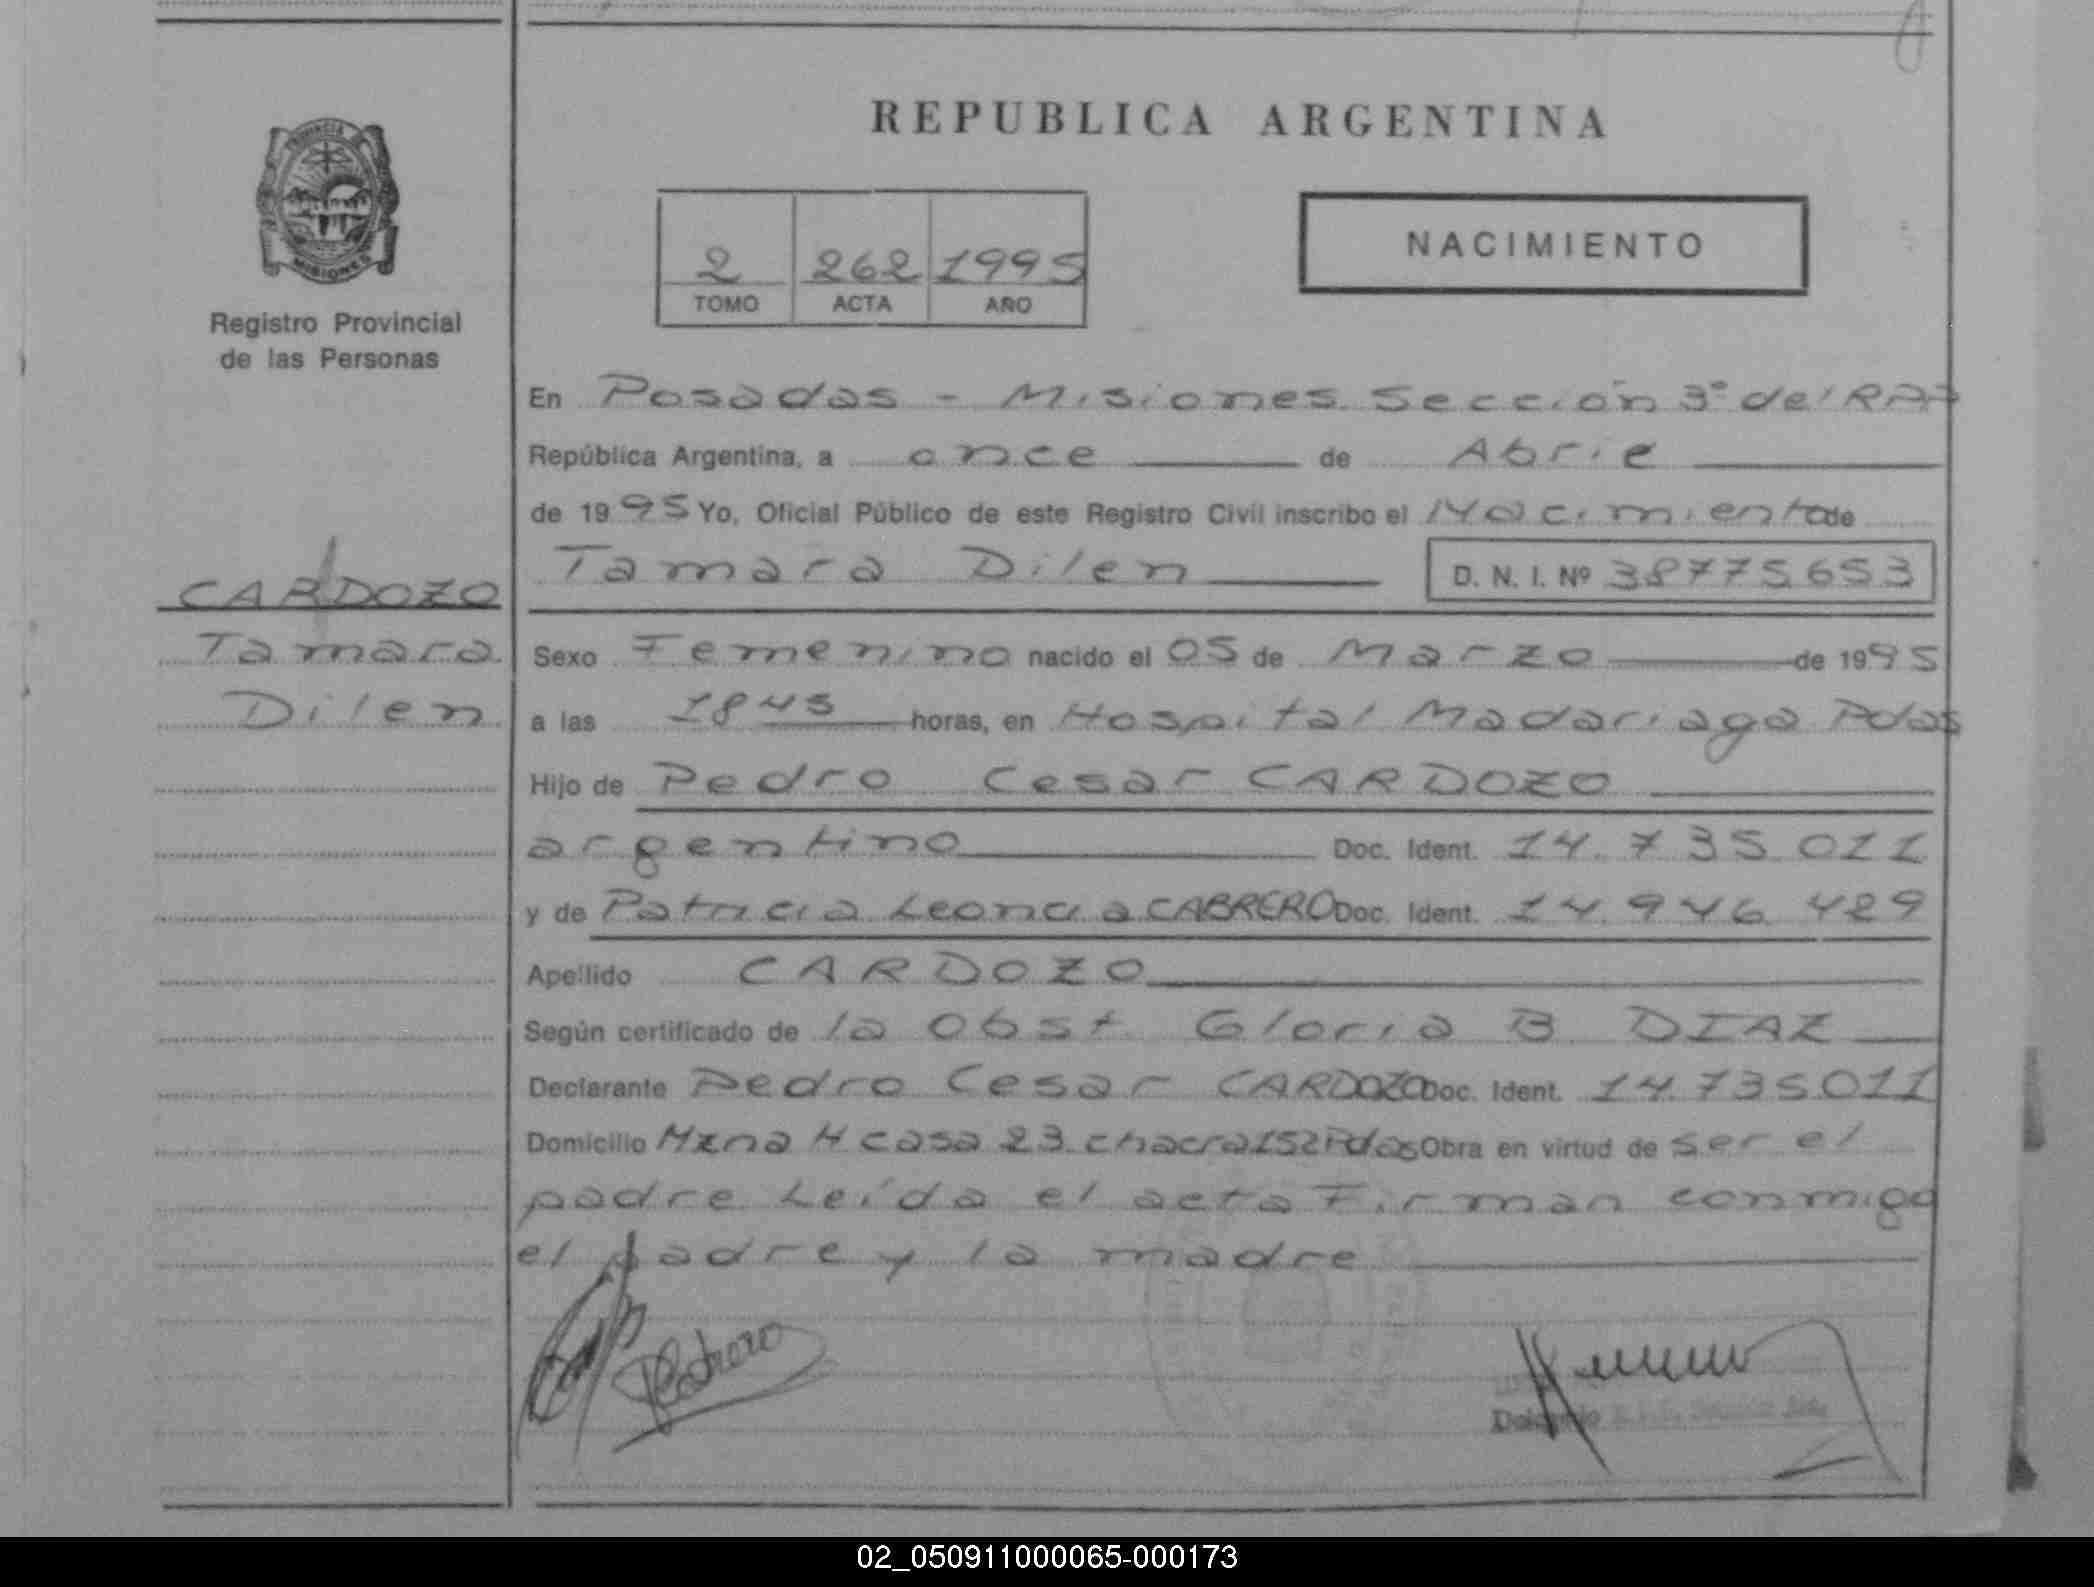 REPUBLICA ARGENTINA
PROVINCIA
MISIONES
Registro Provincial
de las Personas
2 262 1995
TOMO ACTA AÑO
NACIMIENTO
En Posadas - Misiones. Sección 3º del RPP
República Argentina, a once de Abril
de 1995 Yo, Oficial Público de este Registro Civil inscribo el Nacimiento de
Tamara Dilen D. N. I. Nº 38775653
CARDOZO
Tamara
Dilen
Sexo Femenino nacido el 05 de Marzo de 1995
a las 18 45 horas, en Hospital Madariaga Pdas
Hijo de Pedro Cesar CARDOZO
argentino Doc. Ident. 14.735 011
y de Patricia Leoncia CABRERO Doc. Ident. 14.946 429
Apellido CARDOZO
Según certificado de la Obst. Gloria B DIAZ
Declarante Pedro Cesar CARDOZO Doc. Ident. 14.735.011
Domicilio Mzna H casa 23 chacra 152 Pdas Obra en virtud de ser el
padre Leída el acta Firman conmigo
el padre y la madre
PCabrero
02_050911000065-000173